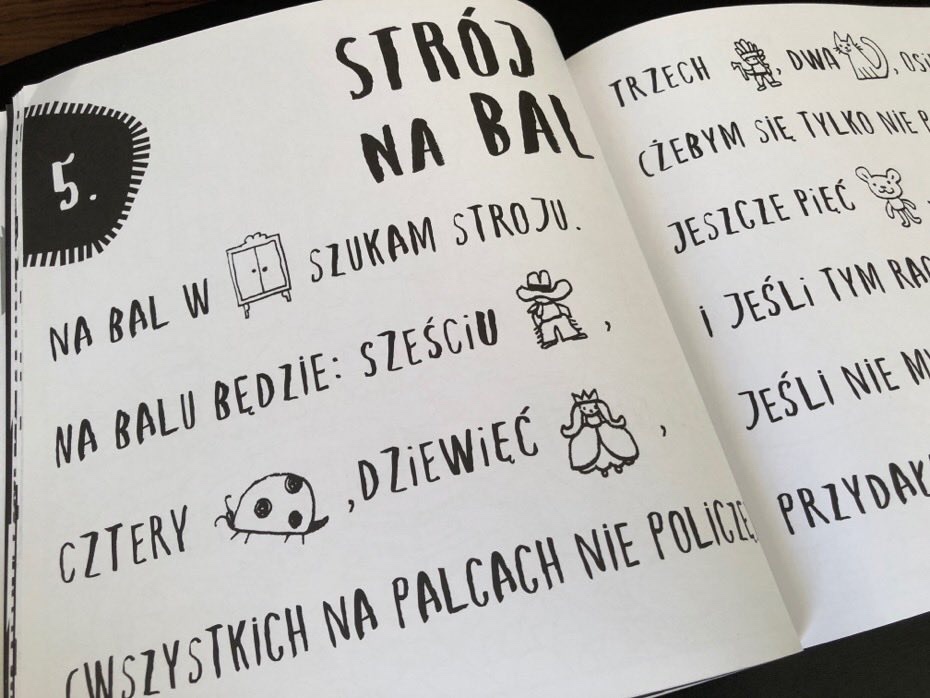 5.
STRÓJ
NA BAL
NA BAL W SZUKAM STROJU.
NA BALU BĘDZIE: SZEŚCIU ,
CZTERY , DZIEWIĘĆ ,
(WSZYSTKICH NA PALCACH NIE POLICZĘ,
TRZECH , DWA ,
(ŻEBYM SIĘ TYLKO NIE
JESZCZE PIĘĆ
I JEŚLI TYM
JEŚLI NIE